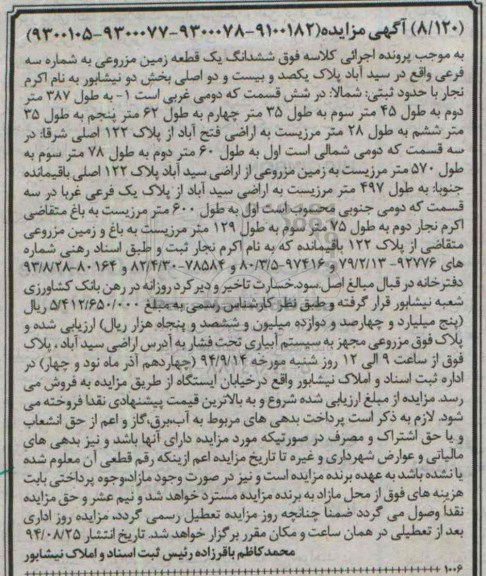 (۸/۱۲۰) آگهی مزایده(۹۱۰۰۱۸۲-۹۳۰۰۰۷۸-۹۳۰۰۰۷۷-۹۳۰۰۱۰۵)
به موجب پرونده اجرائی کلاسه فوق ششدانگ یک قطعه زمین مزروعی به شماره سه
فرعی واقع در سید آباد پلاک یکصد و بیست و دو اصلی بخش دو نیشابور به نام اکرم
نجار با حدود ثبتی: شمالا: در شش قسمت که دومی غربی است ۱- به طول ۳۸۷ متر
دوم به طول ۴۵ متر سوم به طول ۳۵ متر چهارم به طول ۶۲ متر پنجم به طول ۳۵
متر ششم به طول ۲۸ متر مرزیست به اراضی فتح آباد از پلاک ۱۲۲ اصلی شرقا: در
سه قسمت که دومی شمالی است اول به طول ۶۰ متر دوم به طول ۷۸ متر سوم به
طول ۵۷۰ متر مرزیست به زمین مزروعی از اراضی سید آباد پلاک ۱۲۲ اصلی باقیمانده
جنوبا: به طول ۴۹۷ متر مرزیست به اراضی سید آباد از پلاک یک فرعی غربا در سه
قسمت که دومی جنوبی محسوب است اول به طول ۶۰۰ متر مرزیست به باغ متقاضی
اکرم نجار دوم به طول ۷۵ متر سوم به طول ۱۲۹ متر مرزیست به باغ و زمین مزروعی
متقاضی از پلاک ۱۲۲ باقیمانده که به نام اکرم نجار ثبت و طبق اسناد رهنی شماره
های ۹۲۷۷۶-۷۹/۲/۱۳ و ۹۷۴۱۶-۸۰/۳/۵ و ۷۸۵۸۴-۸۲/۴/۳۰ و ۸۰۱۶۴-۹۳/۸/۲۸
دفترخانه در قبال مبالغ اصل،سود،خسارت تاخیر و دیر کرد روزانه در رهن بانک کشاورزی
شعبه نیشابور قرار گرفته و طبق نظر کارشناس رسمی به مبلغ ۵/۴۱۲/۶۵۰/۰۰۰ ریال
(پنج میلیارد و چهارصد و دوازده میلیون و ششصد و پنجاه هزار ریال) ارزیابی شده و
پلاک فوق مزروعی مجهز به سیستم آبیاری تحت فشار به آدرس اراضی سید آباد ، پلاک
فوق از ساعت ۹ الی ۱۲ روز شنبه مورخه ۹۴/۹/۱۴ (چهاردهم آذر ماه نود و چهار) در
اداره ثبت اسناد و املاک نیشابور واقع درخیابان ایستگاه از طریق مزایده به فروش می
رسد. مزایده از مبلغ ارزیابی شده شروع و به بالاترین قیمت پیشنهادی نقدا فروخته می
شود. لازم به ذکر است پرداخت بدهی های مربوط به آب،برق،گاز و اعم از حق انشعاب
و یا حق اشتراک و مصرف در صورتیکه مورد مزایده دارای آنها باشد و نیز بدهی های
مالیاتی و عوارض شهرداری و غیره تا تاریخ مزایده اعم ازینکه رقم قطعی آن معلوم شده
یا نشده باشد به عهده برنده مزایده است و نیز در صورت وجود مازاد،وجوه پرداختی بابت
هزینه های فوق از محل مازاد به برنده مزایده مسترد خواهد شد و نیم عشر و حق مزایده
نقدا وصول می گردد ضمنا چنانچه روز مزایده تعطیل رسمی گردد، مزایده روز اداری
بعد از تعطیلی در همان ساعت و مکان مقرر برگزار خواهد شد. تاریخ انتشار ۹۴/۰۸/۲۵
محمدکاظم باقرزاده رئیس ثبت اسناد و املاک نیشابور
۱۰۰۶